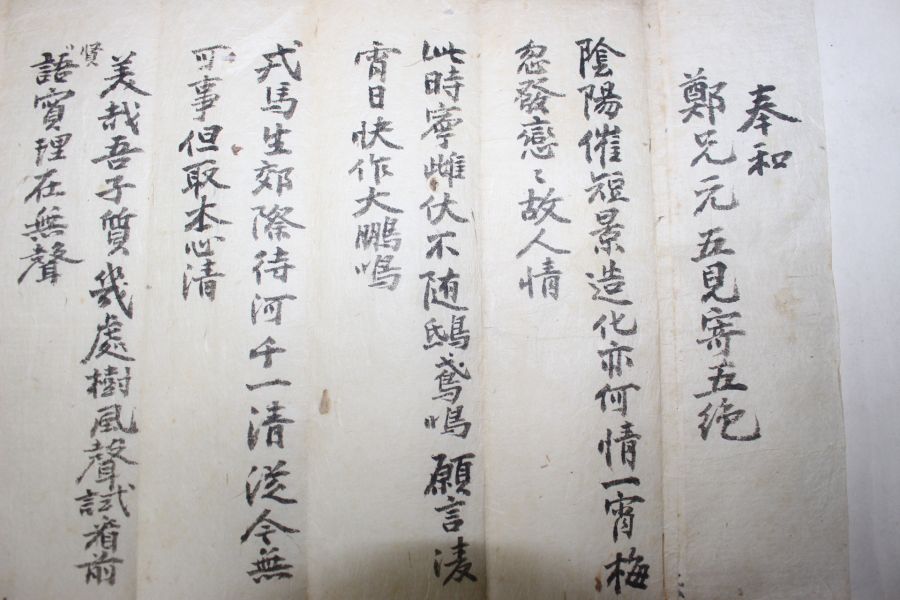 奉和
鄭兄元五見寄五絶
陰陽催短景造化亦何情一宵梅
忽發戀〻故人情
此時寧雌伏不随鴟鳶鳴願言凌
霄日快作大鵬鳴
戎馬生郊際待河千一清従今無
可事但取本心清
美哉吾子質幾處樹風聲試看前
賢語實理在無聲